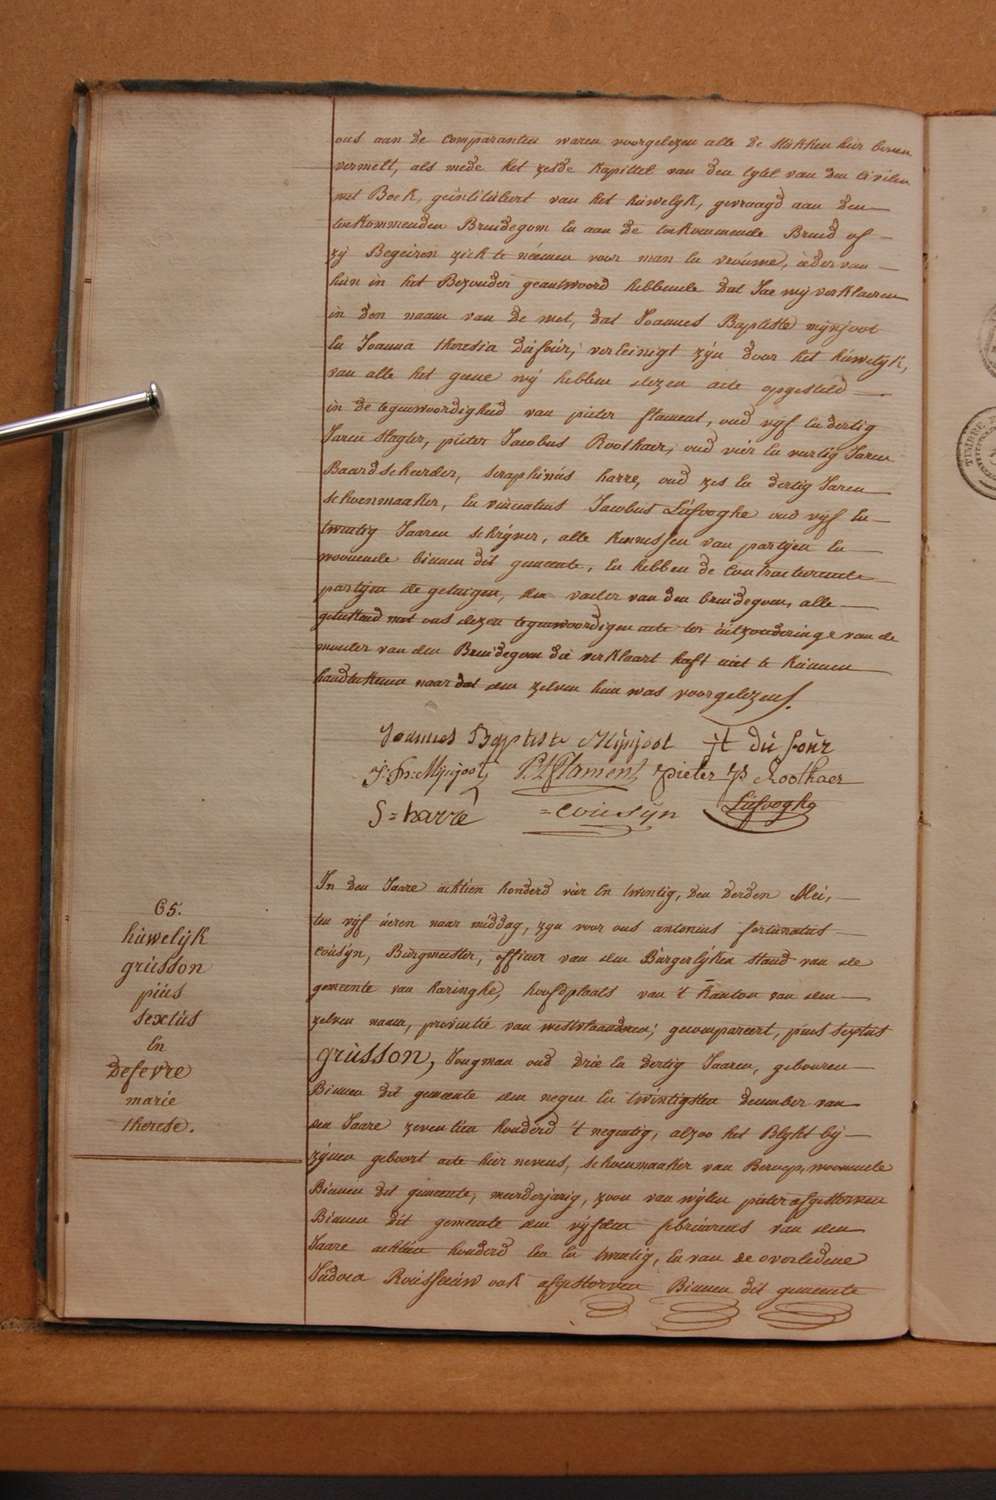 ons aan de comparanten waren voorgelezen alle de stukken hier boven
vermelt, als mede het zesde kapittel van den tytel van den Civilen
met Boek, geïntituleert van het hùwelyk, gevraagd aan den
toekommenden Bruidegom en aan de toekommende Bruid of
zy Begeiren zich te néemen voor man en vrouwe, ieder van
hùn in het Bezonder geantwoord hebbende dat Jae wy verklaeren
in den naam van de wet, dat Joannes Baptiste mynjoot
en Joanna theresia Dùfoùr, vereinigt zyn door het hùwelyk,
van alle het geene wy hebben dezen acte opgesteld
in de tegenwoordigheid van pieter flament, oud vyf en dertig
Jaren slagter, pieter Jacobus Roothaer, oud vier en vertig Jaren
Baardscheerder, seraphinùs harre, oud zes en dertig Jaren
schoenmaaker, en vincentius Jacobus Lùfooghe oud vyf en
twintig Jaaren schryver, alle kennissen van partyen en
woonende binnen dit gemeente, en hebben de Contracteerende
partyen de getuigen, den vader van den bruidegom, alle
geteekend met ons dezen tegenwoordigen acte ter ùitzonderinge van de
moeder van den Bruidegom die verklaart heeft niet te kùnnen
handteekenen naar dat den zelven hun was voorgelezen.
Joannes Baptiste Mijnjoot jt dù foùr
J: Bt: Mijnjoot P:J Flament pieter Jb Roothaer
S = harre = coùsÿn Lùfooghe
In den Jaare achtien honderd vier en twintig, den derden Mei,
ten vyf ùeren naar middag, zyn voor ons antonius fortunatus
coùsyn, Bùrgmeester, officier van den Bùrgerlyken stand van de
gemeente van haringhe, hoofdplaats van 't kanton van den
zelven naam, provintie van westvlaandren; gecompareert, pius sextus
grùsson, Jongman oud drie en dertig Jaaren, gebooren
Binnen dit gemeente den negen en twintigsten december van
den Jaare zeventien honderd 't negentig, alzoo het Blykt by
zÿnen geboort acte hier nevens, schoenmaaker van Beroep, woonende
Binnen dit gemeente, meerderjarig, zoon van wylen pieter afgestorven
Binnen dit gemeente den vyfden febrùarius van den
Jaare achtien honderd en twintig, en van de overledene
Jùdoca Roùsseeùw ook afgestorven Binnen dit gemeente
65.
hùwelÿk
grùsson
piùs
sextùs
En
Defevre
marie
therese.
TIMBRE